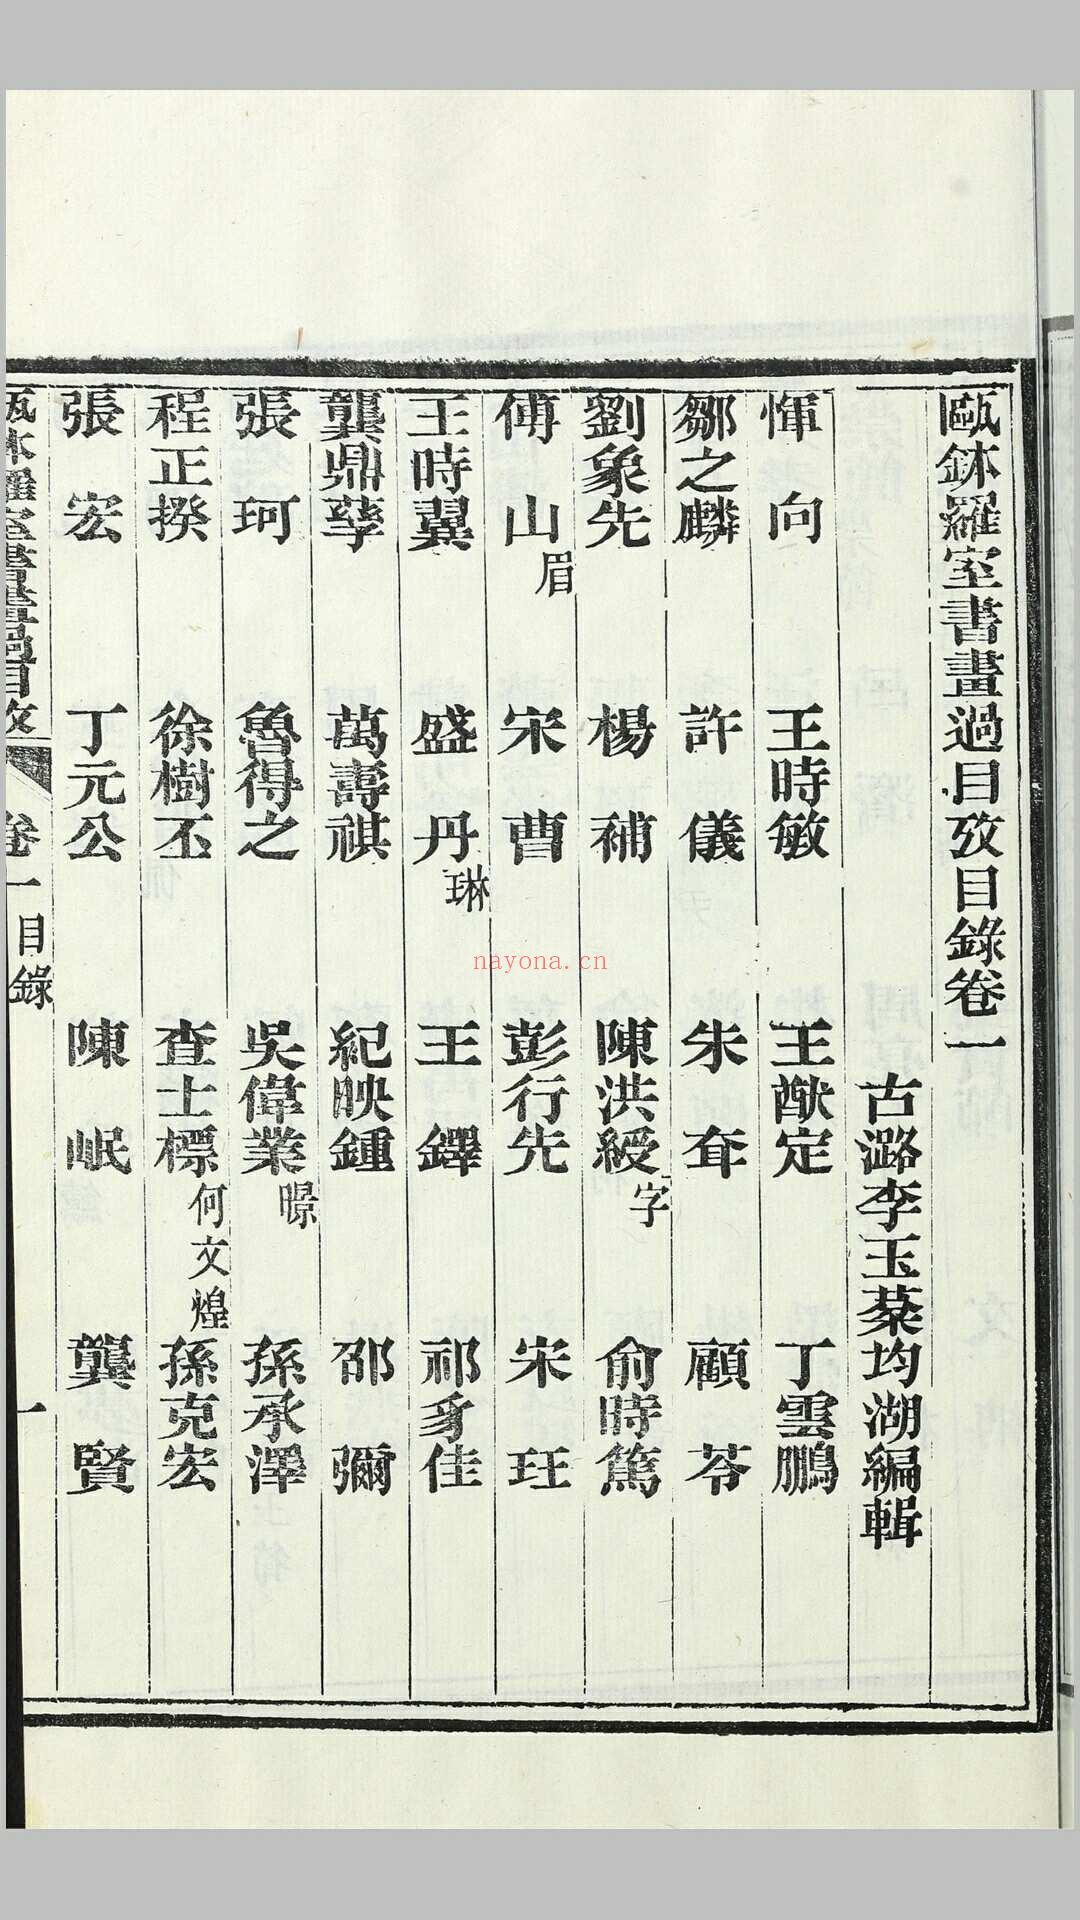 甌鉢羅室書畫過目攷目錄卷一
古潞李玉棻均湖編輯
惲向　王時敏　王猷定　丁雲鵬
鄒之麟　許儀　朱耷　顧苓
劉象先　楊補　陳洪綬字　俞時篤
傅山眉　宋曹　彭行先　宋珏
王時翼　盛丹琳　王鐸　祁豸佳
龔鼎孳　萬壽祺　紀映鍾　邵彌
張珂　魯得之　吳偉業暻　孫承澤
程正揆　徐樹丕　查士標何文煌　孫克宏
張宏　丁元公　陳岷　龔賢
鉢羅室書畫過目攷　卷一目錄　一
nayona.cn